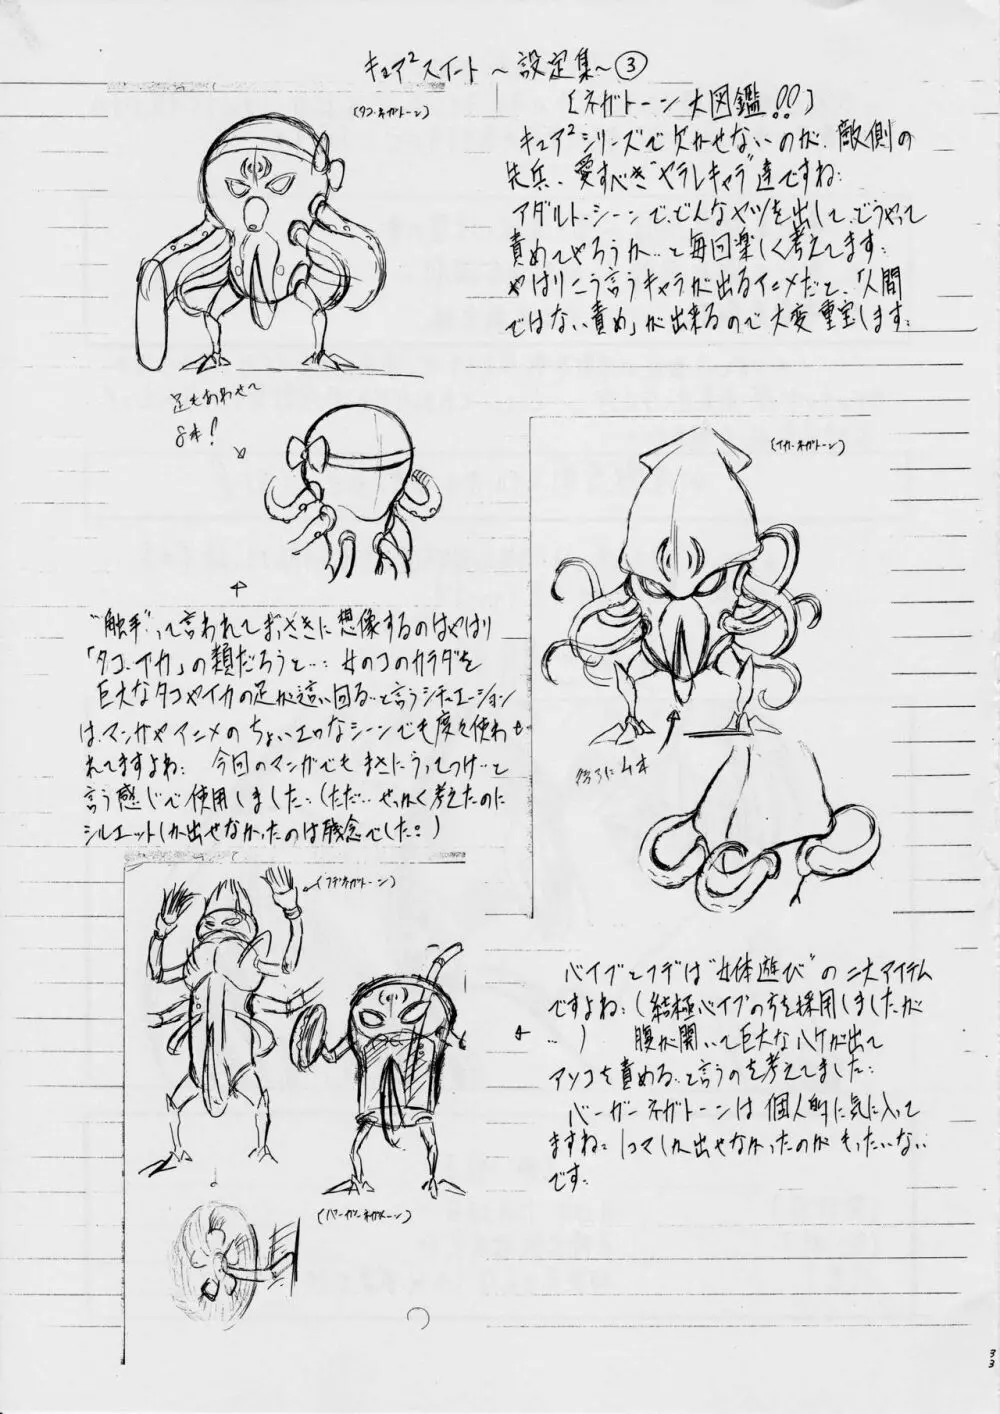 キュア²スイート～設定集～③
(ネガトーン大図鑑!!)
(タコ・ネガトーン)
キュア²シリーズで欠かせないのが、敵側の
先兵、愛すべき"ヤラレキャラ"達ですね:
アダルト・シーンで、どんなヤツを出して、どうやって
責めてやろうか…と毎回楽しく考えてます:
やはりこう言うキャラが出るアニメだと、「人間
ではない責め」が出来るので大変重宝します:
足もあわせて
8本!
(イカ・ネガトーン)
"触手"って言われてまっさきに想像するのはやはり
「タコ、イカ」の類だろうと…: 女のコのカラダを
巨大なタコやイカの足が這い回る…と言うシチュエーション
は、マンガやアニメのちょいエロなシーンでも度々使わ
れてますよね: 今回のマンガでもまさにうってつけ…と
言う感じで使用しました:(ただ…せっかく考えたのに
シルエットしか出せなかったのは残念でした:)
後ろに4本
(フデネガトーン)
バイブとフデは"女体遊び"の二大アイテム
ですよね:(結極バイブの方を採用しましたが
…) 腹が開いて巨大なハケが出て
アソコを責める…と言うのを考えてました:
バーガーネガトーンは個人的に気に入って
ますね: 1コマしか出せなかったのがもったいない
です:
(バーガーネガトーン)
33